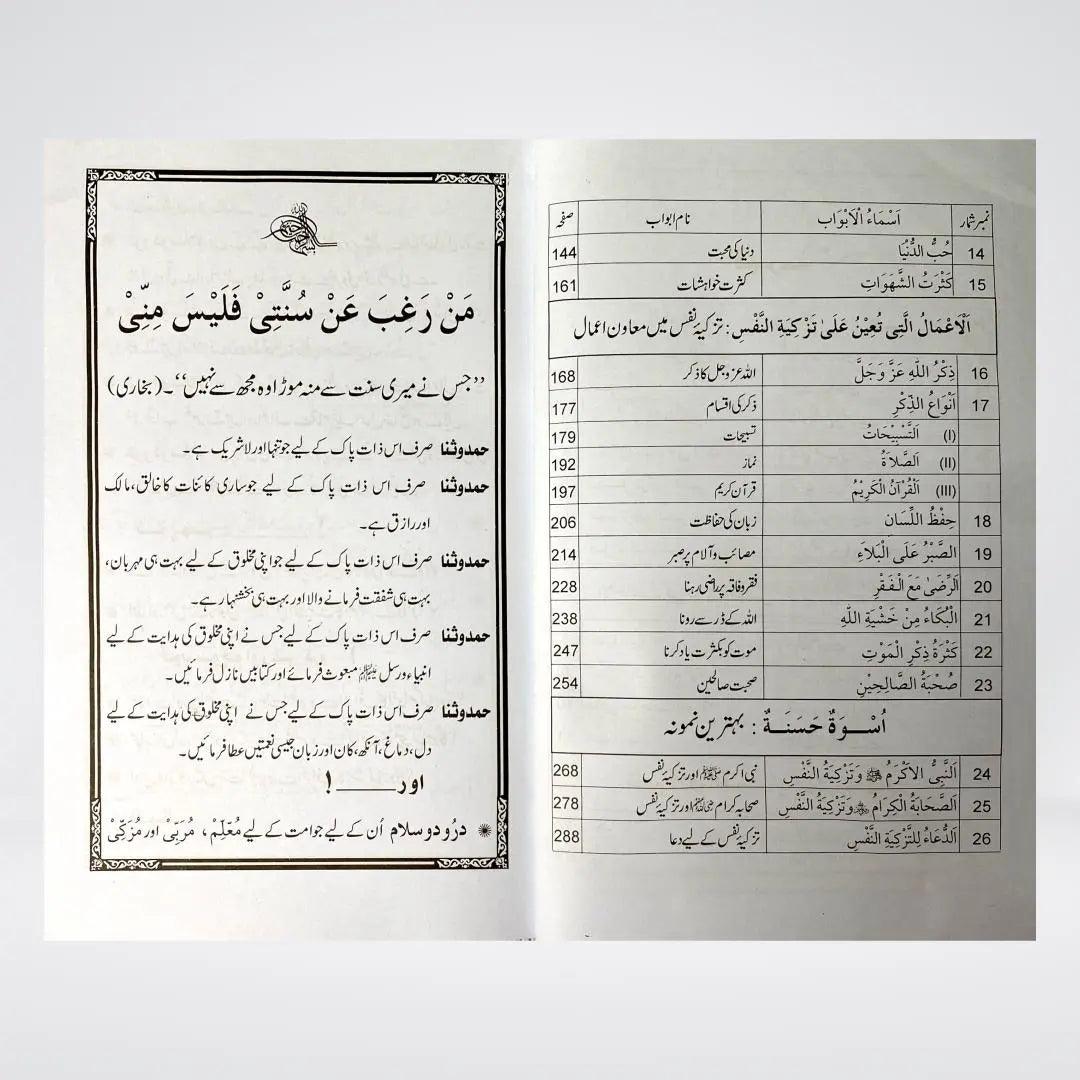 نمبر شمار اَسْمَاءُ الْاَبْوَاب نام ابواب صفحہ
14 حُبُّ الدُّنْیَا دنیا کی محبت 144
15 كَثْرَتُ الشَّهَوَاتِ کثرت خواہشات 161
اَلْاَعْمَالُ الَّتِی تُعِیْنُ عَلٰی تَزْکِیَةِ النَّفْسِ : تزکیۂ نفس میں معاون اعمال
16 ذِكْرُ اللهِ عَزَّ وَجَلَّ اللہ عز وجل کا ذکر 168
17 اَنْوَاعُ الذِّكْرِ ذکر کی اقسام 177
(I) اَلتَّسْبِيْحَاتُ تسبیحات 179
(II) اَلصَّلَاةُ نماز 192
(III) اَلْقُرْآنُ الْكَرِيْمُ قرآن کریم 197
18 حِفْظُ اللِّسَان زبان کی حفاظت 206
19 الصَّبْرُ عَلَى الْبَلَاءِ مصائب و آلام پر صبر 214
20 اَلرِّضٰی مَعَ الْفَقْرِ فقر و فاقہ پر راضی رہنا 228
21 اَلْبُكَاءُ مِنْ خَشْيَةِ اللهِ اللہ کے ڈر سے رونا 238
22 كَثْرَةُ ذِكْرِ الْمَوْتِ موت کو بکثرت یاد کرنا 247
23 صُحْبَةُ الصَّالِحِيْنِ صحبت صالحین 254
اُسْوَةٌ حَسَنَةٌ : بہترین نمونہ
24 اَلنَّبِیُّ الْاَكْرَمُ ﷺ وَتَزْكِيَةُ النَّفْسِ نبی اکرم ﷺ اور تزکیۂ نفس 268
25 اَلصَّحَابَةُ الْكِرَامُ وَتَزْكِيَةُ النَّفْسِ صحابہ کرام اور تزکیۂ نفس 278
26 اَلدُّعَاءُ لِلتَّزْكِيَةِ النَّفْسِ تزکیۂ نفس کے لیے دعا 288
مَنْ رَغِبَ عَنْ سُنَّتِیْ فَلَیْسَ مِنِّیْ
’’جس نے میری سنت سے منہ موڑا وہ مجھ سے نہیں‘‘۔ (بخاری)
حمد وثنا صرف اس ذات پاک کے لیے جو تنہا اور لا شریک ہے۔
حمد وثنا صرف اس ذات پاک کے لیے جو ساری کائنات کا خالق، مالک
اور رازق ہے۔
حمد وثنا صرف اس ذات پاک کے لیے جو اپنی مخلوق کے لیے بہت ہی مہربان،
بہت ہی شفقت فرمانے والا اور بہت ہی بخشنہار ہے۔
حمد وثنا صرف اس ذات پاک کے لیے جس نے اپنی مخلوق کی ہدایت کے لیے
انبیاء و رسل مبعوث فرمائے اور کتابیں نازل فرمائیں۔
حمد وثنا صرف اس ذات پاک کے لیے جس نے اپنی مخلوق کی ہدایت کے لیے
دل، دماغ، آنکھ، کان اور زبان جیسی نعمتیں عطا فرمائیں۔
اور ـــــــ !
درُود و سلام اُن کے لیے جو امت کے لیے مُعَلِّمْ، مُرَبِّیْ اور مُزَکِّیْ